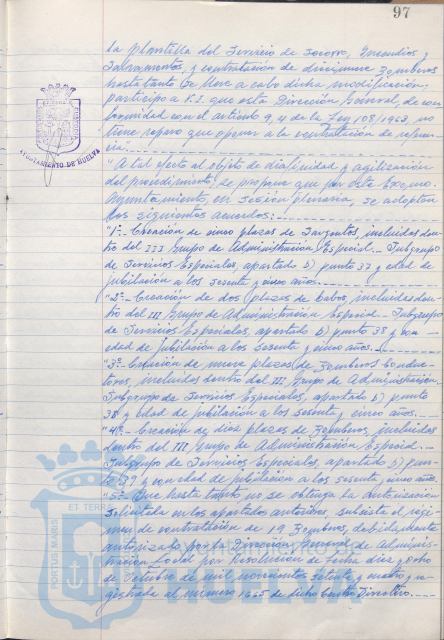 97
la plantilla del Servicio de Socorro, Incendios y
Salvamentos y contratación de diecinueve Bomberos
hasta tanto se lleve a cabo dicha modificación,
participo a V.I. que esta Dirección General, de con-
formidad con el artículo 9, 4 de la Ley 108/1963, no
tiene reparo que oponer a la contratación de referen-
cia".
"A tal efecto al objeto de diafinidad y agilización
del procedimiento, se propone que por este Excmo.
Ayuntamiento, en sesión plenaria, se adopten
los siguientes acuerdos:
"1º.- Creación de cinco plazas de Sargentos, incluidas den-
tro del III Grupo de Administración Especial.- Subgrupo
de Servicios Especiales, apartado b) punto 37 y edad de
jubilación a los sesenta y cinco años.
"2º.- Creación de dos plazas de Cabos, incluidas den-
tro del III Grupo de Administración Especial.- Subgrupo
de Servicios Especiales, apartado b) punto 38 y con
edad de jubilación a los sesenta y cinco años.
"3º.- Creación de nueve plazas de Bomberos Conduc-
tores, incluidos dentro del III Grupo de Administración
Subgrupo de Servicios Especiales, apartado b) punto
38 y edad de jubilación a los sesenta y cinco años.
"4º.- Creación de diez plazas de Bomberos, incluidas
dentro del III Grupo de Administración Especial.-
Subgrupo de Servicios Especiales, apartado b) pun-
to 39 y con edad de jubilación a los sesenta y cinco años.
"5º.- Que hasta tanto no se obtenga la autorización
solicitada en los apartados anteriores, subsista el régi-
men de contratación de 19 Bomberos, debidamente
autorizado por la Dirección General de Adminis-
tración Local por Resolución de fecha diez y ocho
de Octubre de mil novecientos setenta y cuatro, re-
gistrada al número 1665 de dicho Centro Directivo.
AYUNTAMIENTO DE HUELVA
PORTUS MARIS ET TERR
Ayuntamiento de
HUELVA